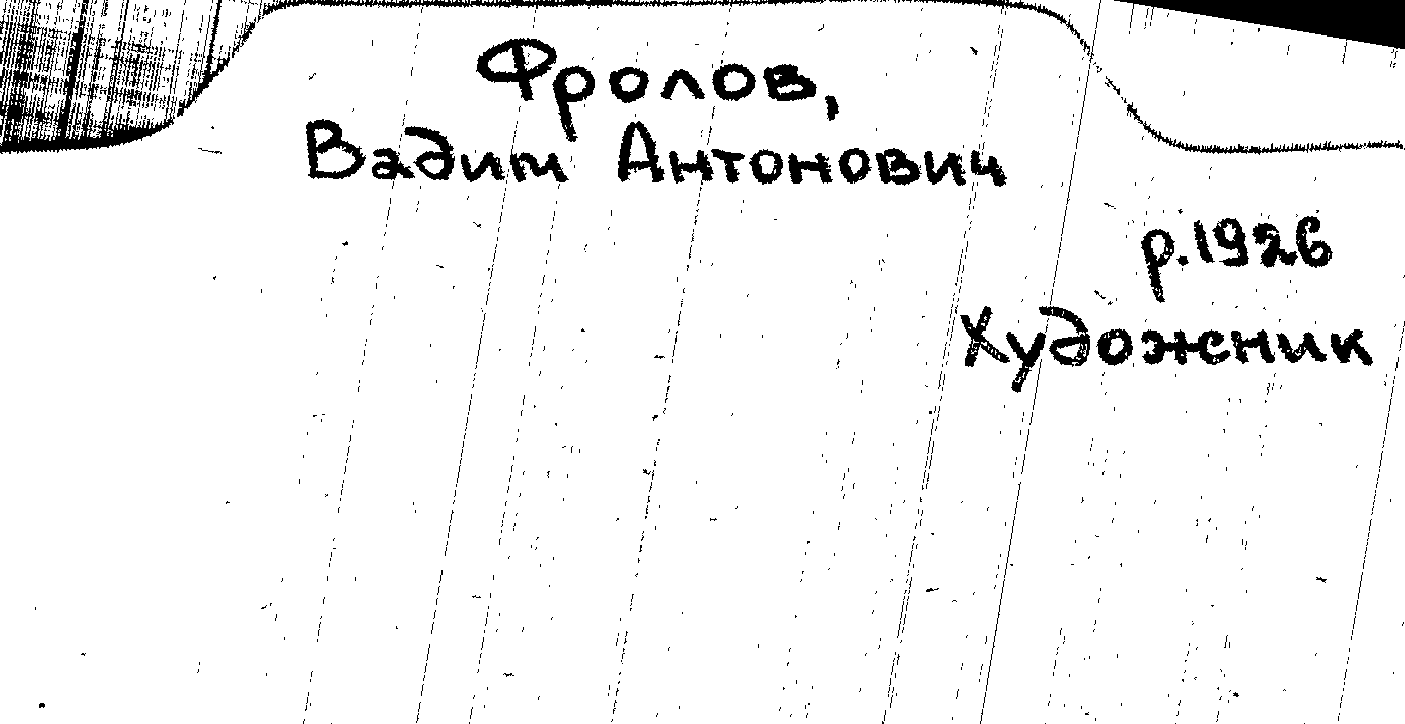 Фролов,
Вадим Антонович
р.1926
Художник